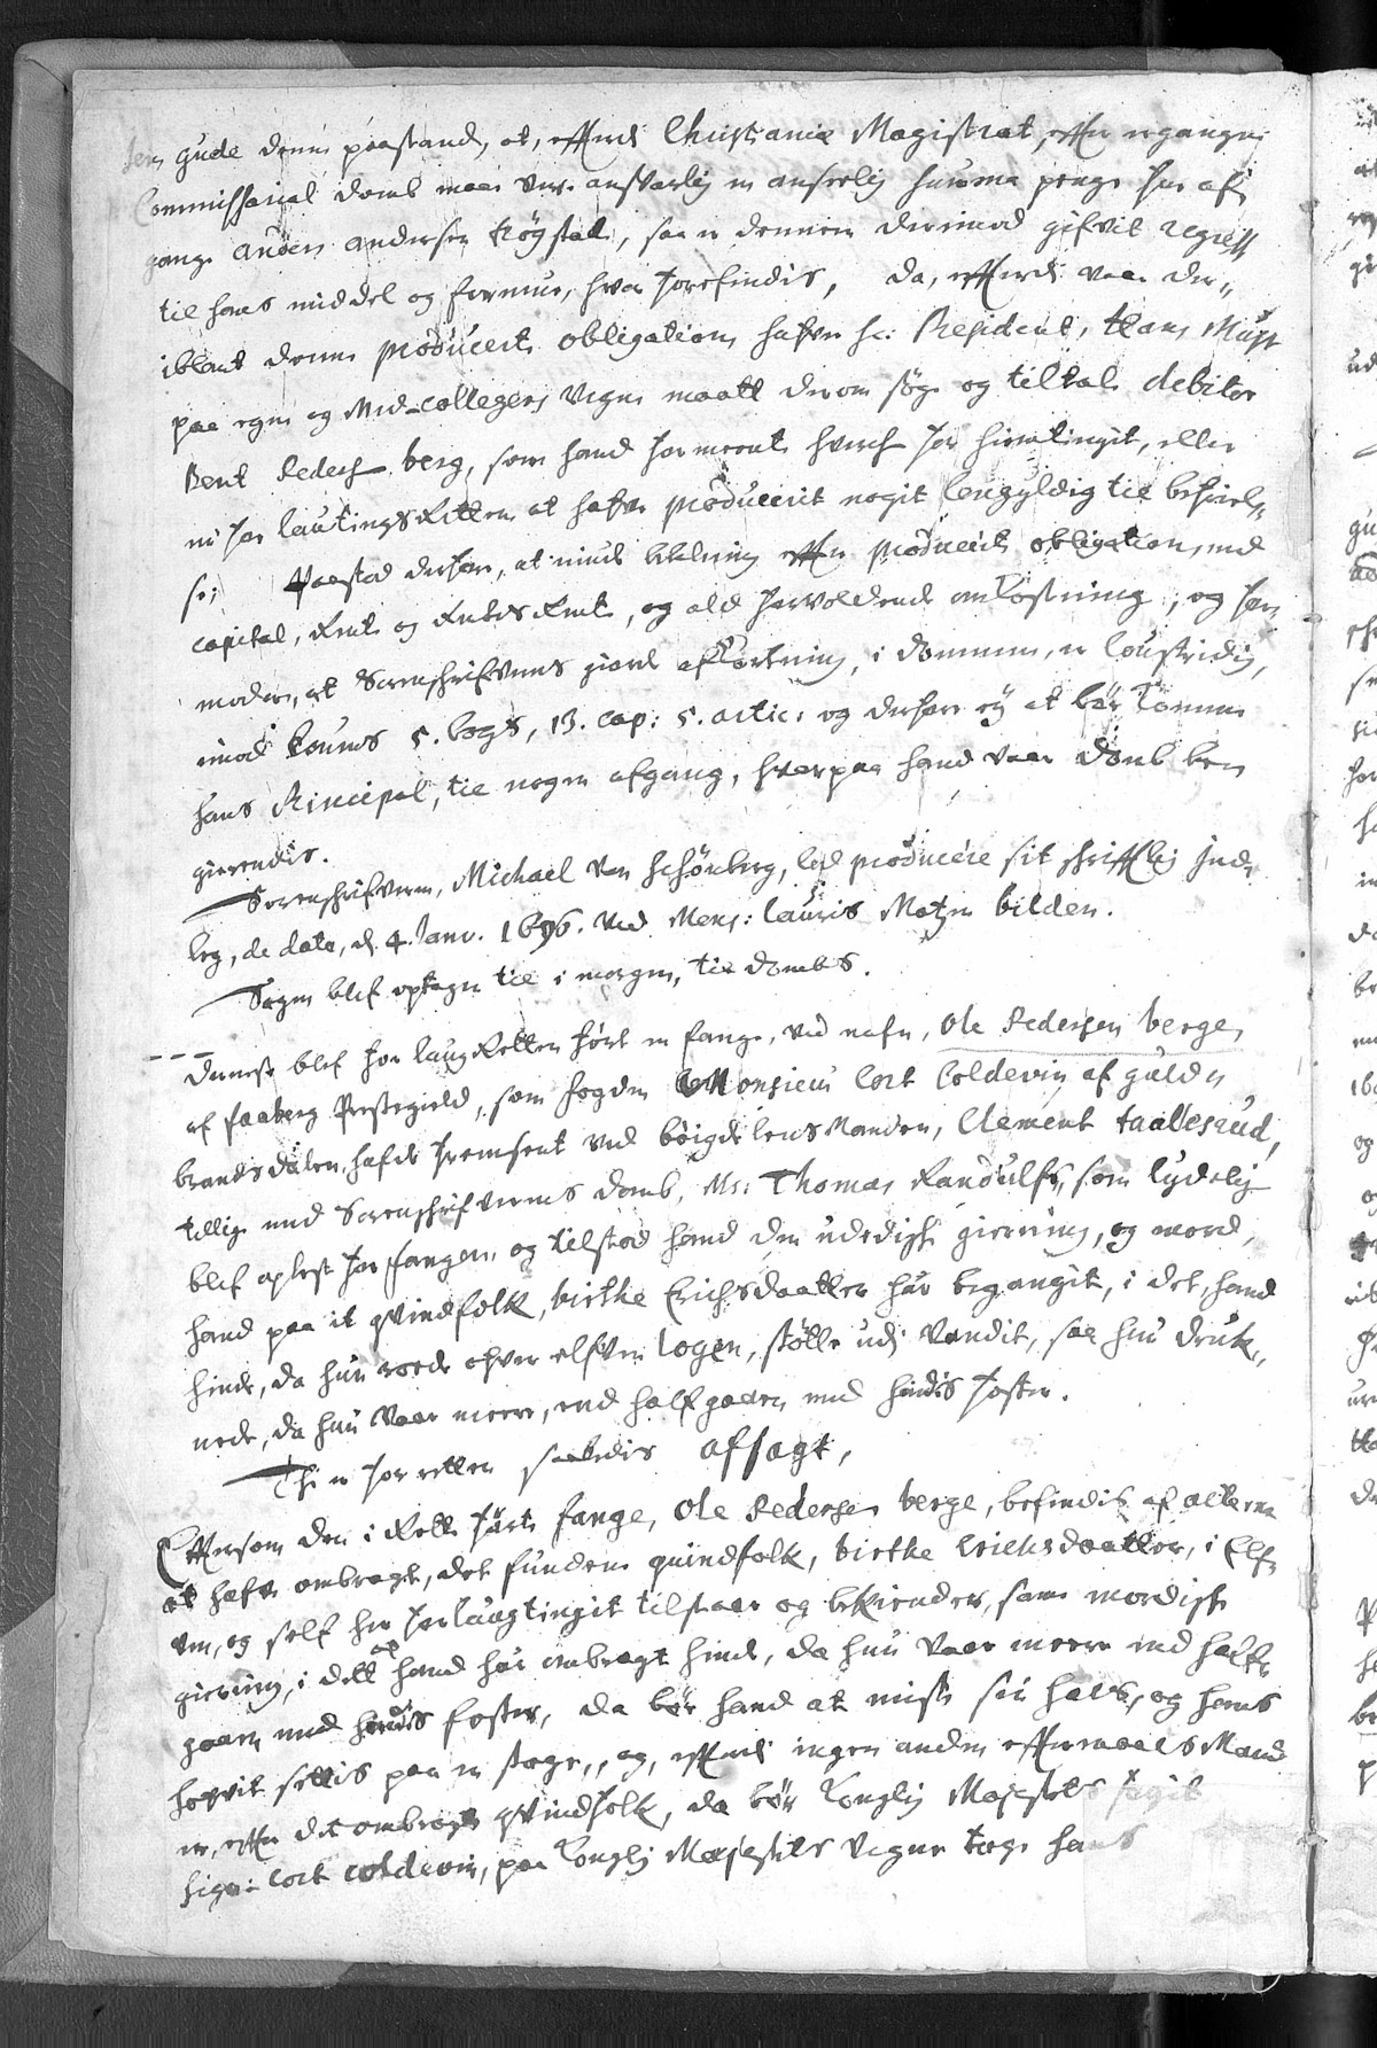 Jens gude denne paastand, at, effterdj Christianiæ Magistrat, effter ergangne
Commissarial domb maae være ansvarlig en anseelig summa penge for af¬
gangne Anders Andersen trögstad, saa er dennem derimod gifvet regress
til hans middel og formue, hvor forefindis, da, effterdj vaar der„
iblant denne producerte obligation, hafver hr. President, Hans Must
paa egne og Med-collegers vegne maatt derom søge og tiltale debitor
Bent Pedersen berg, som hand formeente hverken for hiemtinget, eller
nu for laugtings Retten at hafve produceret noget louggyldig til befriel„
se; Paastod derfore, at minde betalning effter producerte obligation, med
capital, Rente og Rentes Rente, og ald forvoldende omkostning, og for„
moder, at Sorenschrifverens giorde afkortning, i dommen, er loustridig,
imod Lovens 5. bogs, 13. cap: 5. artic: og derfore ej at bør komme
hans Principal, til nogen afgang, hvorpaa hand vaar domb be„
gierendis.
Sorenschrifveren, Michael von Schönberg, lod producere sit schrifftlig Ind¬
leg, de dato, d. 4. Janv. 1696. ved Mons: lauris Matzen bilden.
Sagen blef optagen til i morgen, til dombs.
Dernest blef for laug Retten ført en fange, ved nafn, Ole Pedersen berge,
af faaberg Prestegield, som fogden Monsieur Cort Coldevin af guld„
brandsdalen, hafde fremsent med böigde lensManden, Clement taallesrud,
tillige med Sorenschrifverens domb, Mr: Thomas Randulfs, som lydelig
blef oplæst for fangen, og tilstod hand den udediske gierning, og mord,
hand paa it qvindfolk, birthe Erichsdaatter har begangit, i det, hand
hinde, da hun roede ofver elfven logen, støtte udj vandit, saa hun druk„
nede, da hun vaar meere, end half gaaen med hindis foster.
Thi er for retten saaledis afsagt,
Efftersom den i Rette førte fange, Ole Pedersen berge, befindis af acterne
at hafve ombragt, det fundene quindfolk, birthe Erichsdaatter, i Elf„
ven, og self her for laugtingit tilstaar og bekiender, samme mordiske
gierning, i dett at hand har ombragt hinde, da hun vaar meere end halff
gaaen med hendis foster, da bør hand at miste sin hals, og hans
hofvit settis paa en stage, og, effterdj ingen anden efftermaals Mand
er, effter det ombragte qvindfolk, da bør Konglig Majestets fogit
Sign: Cort Coldevin, paa Konglig Majestets vegne tage hans